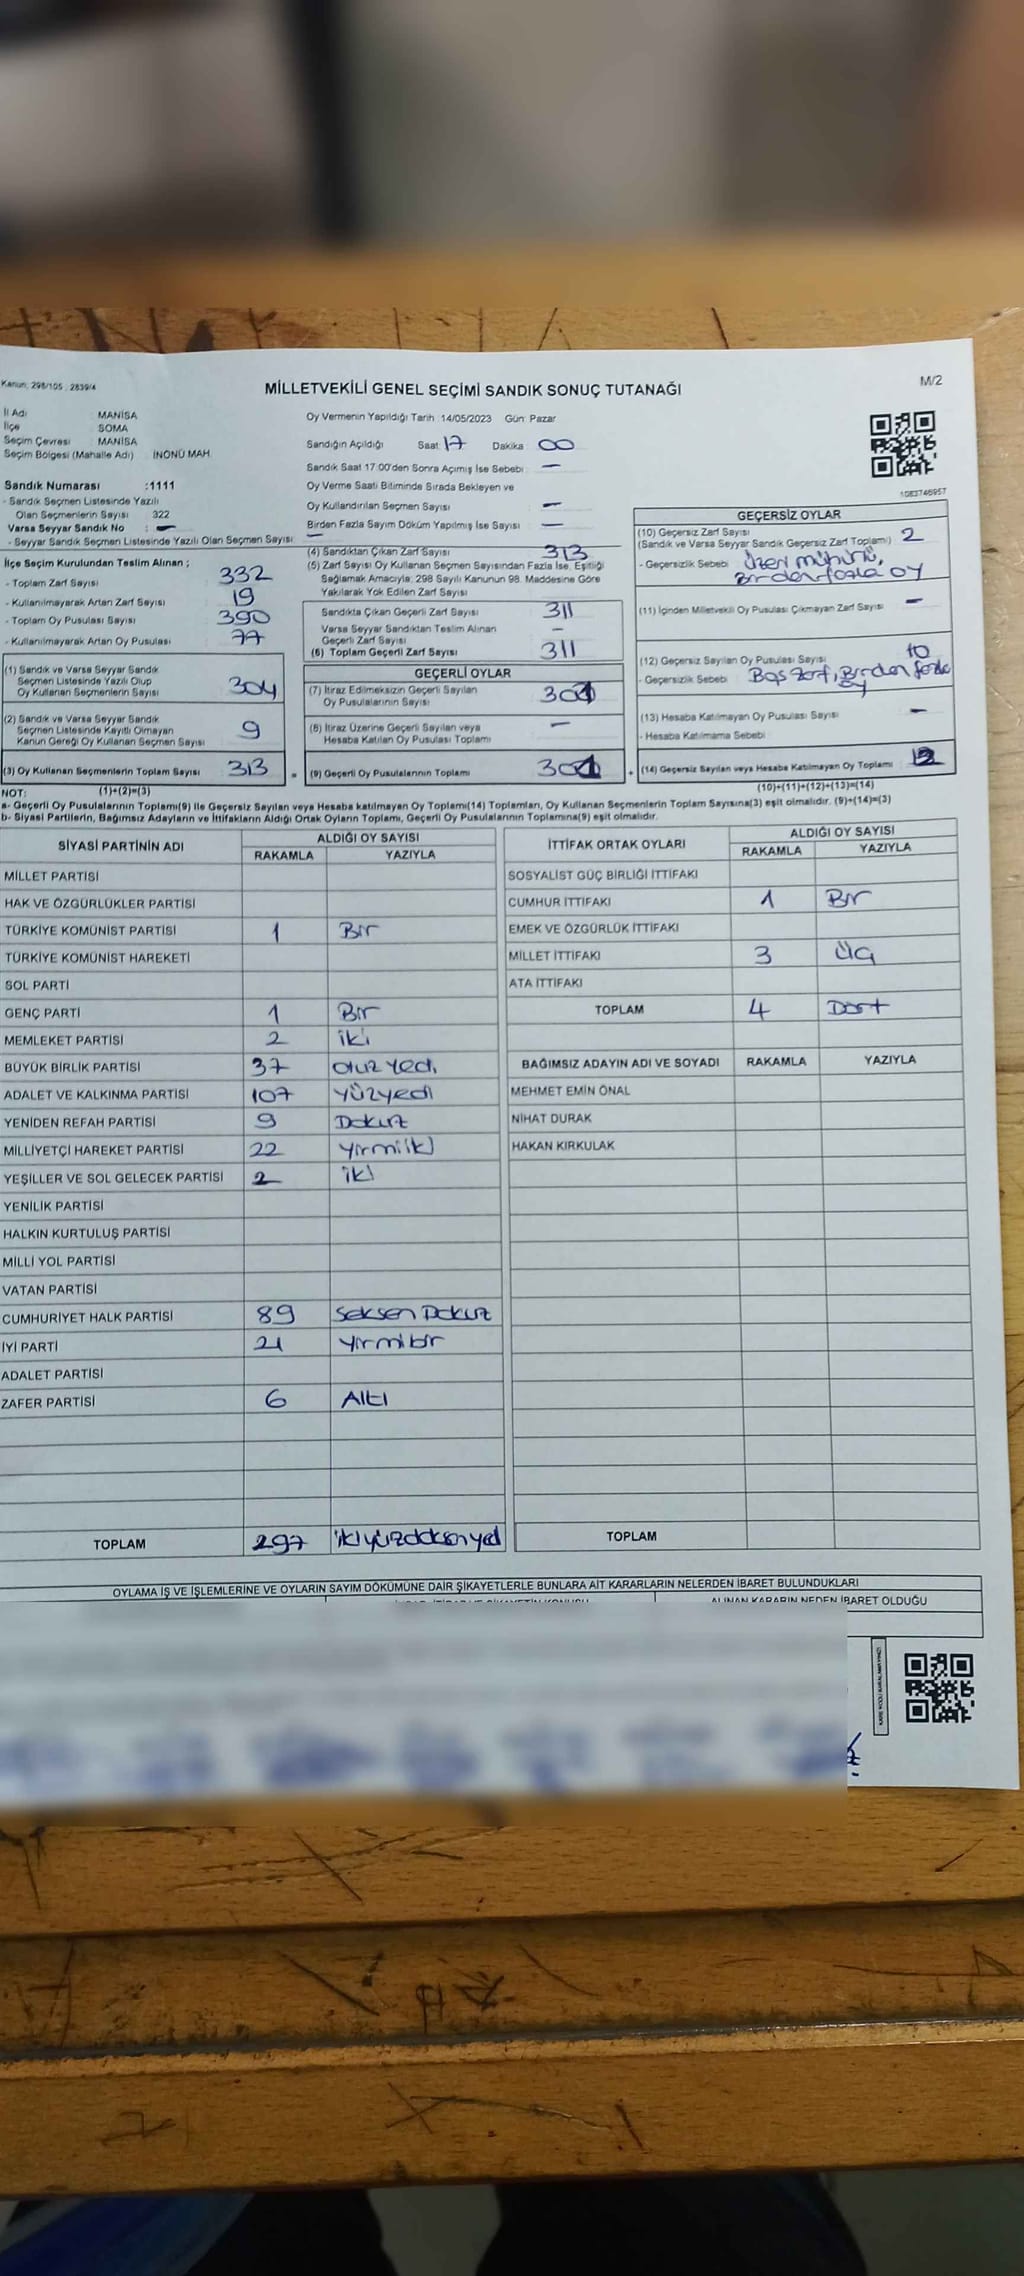 Kanun: 298/105 ; 2839/4
MİLLETVEKİLİ GENEL SEÇİMİ SANDIK SONUÇ TUTANAĞI
M/2
İl Adı MANİSA
İlçe SOMA
Seçim Çevresi : MANİSA
Seçim Bölgesi (Mahalle Adı) İNÖNÜ MAH.
Sandık Numarası :1111
- Sandık Seçmen Listesinde Yazılı
Olan Seçmenlerin Sayısı 322
Varsa Seyyar Sandık No : -
- Seyyar Sandık Seçmen Listesinde Yazılı Olan Seçmen Sayısı : -
İlçe Seçim Kurulundan Teslim Alınan ;
- Toplam Zarf Sayısı 332
- Kullanılmayarak Artan Zarf Sayısı 19
- Toplam Oy Pusulası Sayısı 390
- Kullanılmayarak Artan Oy Pusulası 77
(1) Sandık ve Varsa Seyyar Sandık
Seçmen Listesinde Yazılı Olup
Oy Kullanan Seçmenlerin Sayısı 304
(2) Sandık ve Varsa Seyyar Sandık
Seçmen Listesinde Kayıtlı Olmayan
Kanun Gereği Oy Kullanan Seçmen Sayısı 9
(3) Oy Kullanan Seçmenlerin Toplam Sayısı 313
Oy Vermenin Yapıldığı Tarih :14/05/2023 Gün: Pazar
Sandığın Açıldığı Saat 17 Dakika 00
Sandık Saat 17:00'den Sonra Açımış İse Sebebi : -
Oy Verme Saati Bitiminde Sırada Bekleyen ve
Oy Kullandırılan Seçmen Sayısı -
Birden Fazla Sayım Döküm Yapılmış İse Sayısı -
(4) Sandıktan Çıkan Zarf Sayısı 313
(5) Zarf Sayısı Oy Kullanan Seçmen Sayısından Fazla İse, Eşitliği
Sağlamak Amacıyla, 298 Sayılı Kanunun 98. Maddesine Göre
Yakılarak Yok Edilen Zarf Sayısı
Sandıkta Çıkan Geçerli Zarf Sayısı 311
Varsa Seyyar Sandıktan Teslim Alınan
Geçerli Zarf Sayısı -
(6) Toplam Geçerli Zarf Sayısı 311
GEÇERLİ OYLAR
(7) İtiraz Edilmeksizin Geçerli Sayılan
Oy Pusulalarının Sayısı 301
(8) İtiraz Üzerine Geçerli Sayılan veya
Hesaba Katılan Oy Pusulası Toplamı -
= (9) Geçerli Oy Pusulalarının Toplamı 301
1083746957
GEÇERSİZ OYLAR
(10) Geçersiz Zarf Sayısı
(Sandık ve Varsa Seyyar Sandık Geçersiz Zarf Toplamı) 2
- Geçersizlik Sebebi Üzeri mühürlü,
Birden fazla oy
(11) İçinden Milletvekili Oy Pusulası Çıkmayan Zarf Sayısı -
(12) Geçersiz Sayılan Oy Pusulası Sayısı 10
- Geçersizlik Sebebi Boş Zarf, Birden fazla
oy
(13) Hesaba Katılmayan Oy Pusulası Sayısı -
- Hesaba Katılmama Sebebi
+ (14) Geçersiz Sayılan veya Hesaba Katılmayan Oy Toplamı : 12
NOT: (1)+(2)=(3) (10)+(11)+(12)+(13)=(14)
a- Geçerli Oy Pusulalarının Toplamı(9) ile Geçersiz Sayılan veya Hesaba katılmayan Oy Toplamı(14) Toplamları, Oy Kullanan Seçmenlerin Toplam Sayısına(3) eşit olmalıdır. (9)+(14)=(3)
b- Siyasi Partilerin, Bağımsız Adayların ve İttifakların Aldığı Ortak Oyların Toplamı, Geçerli Oy Pusulalarının Toplamına(9) eşit olmalıdır.
SİYASİ PARTİNİN ADI ALDIĞI OY SAYISI
RAKAMLA YAZIYLA
MİLLET PARTİSİ
HAK VE ÖZGÜRLÜKLER PARTİSİ
TÜRKİYE KOMÜNİST PARTİSİ 1 Bir
TÜRKİYE KOMÜNİST HAREKETİ
SOL PARTİ
GENÇ PARTİ 1 Bir
MEMLEKET PARTİSİ 2 iki
BÜYÜK BİRLİK PARTİSİ 37 otuz yedi
ADALET VE KALKINMA PARTİSİ 107 yüzyedi
YENİDEN REFAH PARTİSİ 9 Dokuz
MİLLİYETÇİ HAREKET PARTİSİ 22 yirmiiki
YEŞİLLER VE SOL GELECEK PARTİSİ 2 iki
YENİLİK PARTİSİ
HALKIN KURTULUŞ PARTİSİ
MİLLİ YOL PARTİSİ
VATAN PARTİSİ
CUMHURİYET HALK PARTİSİ 89 Seksen Dokuz
İYİ PARTİ 21 yirmibir
ADALET PARTİSİ
ZAFER PARTİSİ 6 Altı
TOPLAM 297 ikiyüzdoksanyedi
İTTİFAK ORTAK OYLARI ALDIĞI OY SAYISI
RAKAMLA YAZIYLA
SOSYALİST GÜÇ BİRLİĞİ İTTİFAKI
CUMHUR İTTİFAKI 1 Bir
EMEK VE ÖZGÜRLÜK İTTİFAKI
MİLLET İTTİFAKI 3 Üç
ATA İTTİFAKI
TOPLAM 4 Dört
BAĞIMSIZ ADAYIN ADI VE SOYADI RAKAMLA YAZIYLA
MEHMET EMİN ÖNAL
NİHAT DURAK
HAKAN KIRKULAK
TOPLAM
OYLAMA İŞ VE İŞLEMLERİNE VE OYLARIN SAYIM DÖKÜMÜNE DAİR ŞİKAYETLERLE BUNLARA AİT KARARLARIN NELERDEN İBARET BULUNDUKLARI
ALINAN KARARIN NEDEN İBARET OLDUĞU